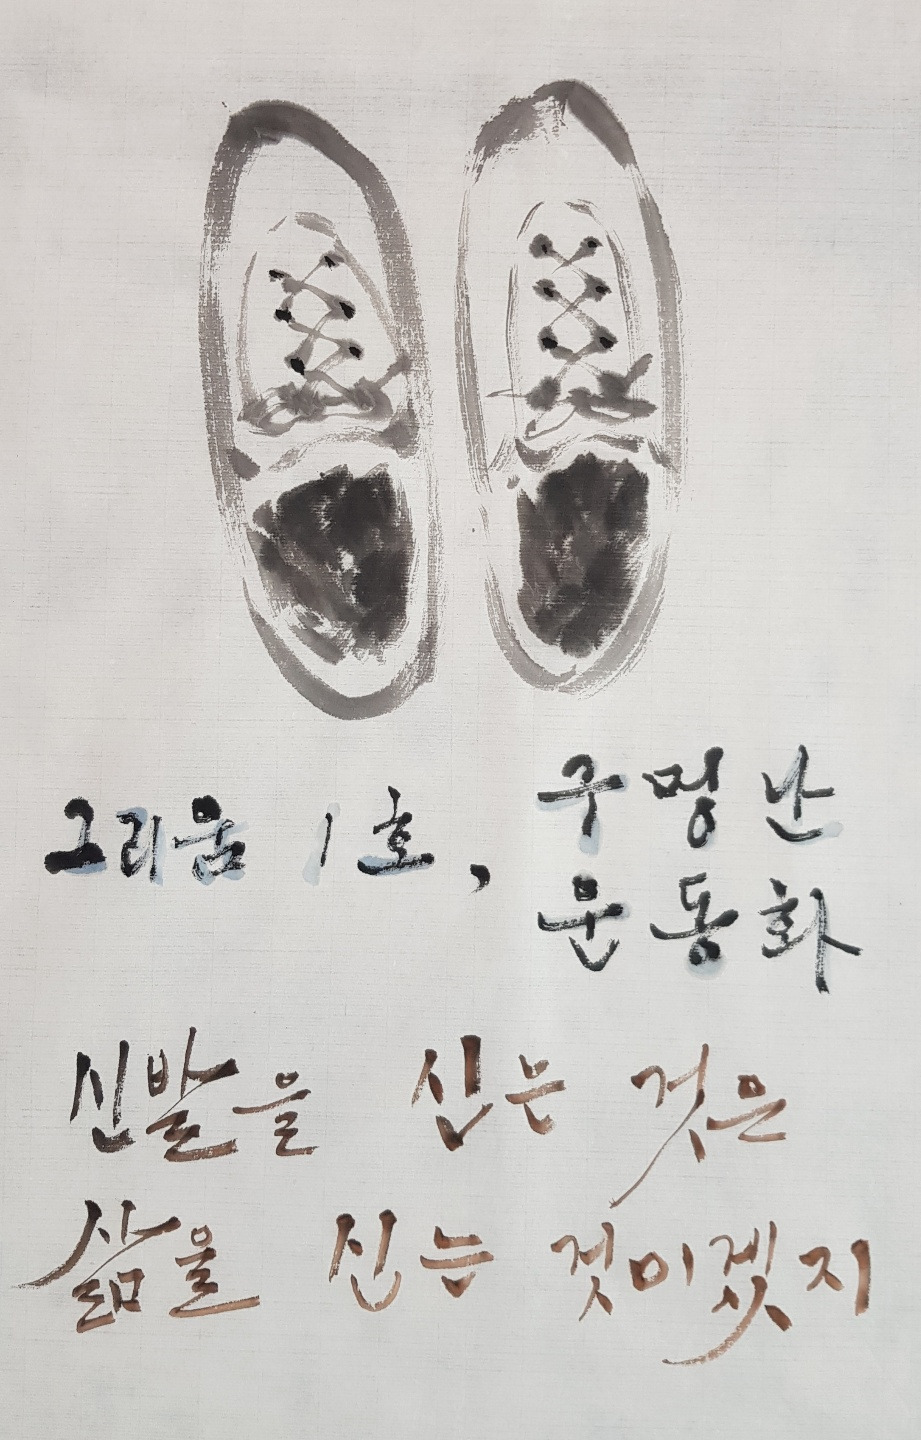 그리움 1호, 구멍 난
운동화
신발을 신는 것은
삶을 신는 것이겠지